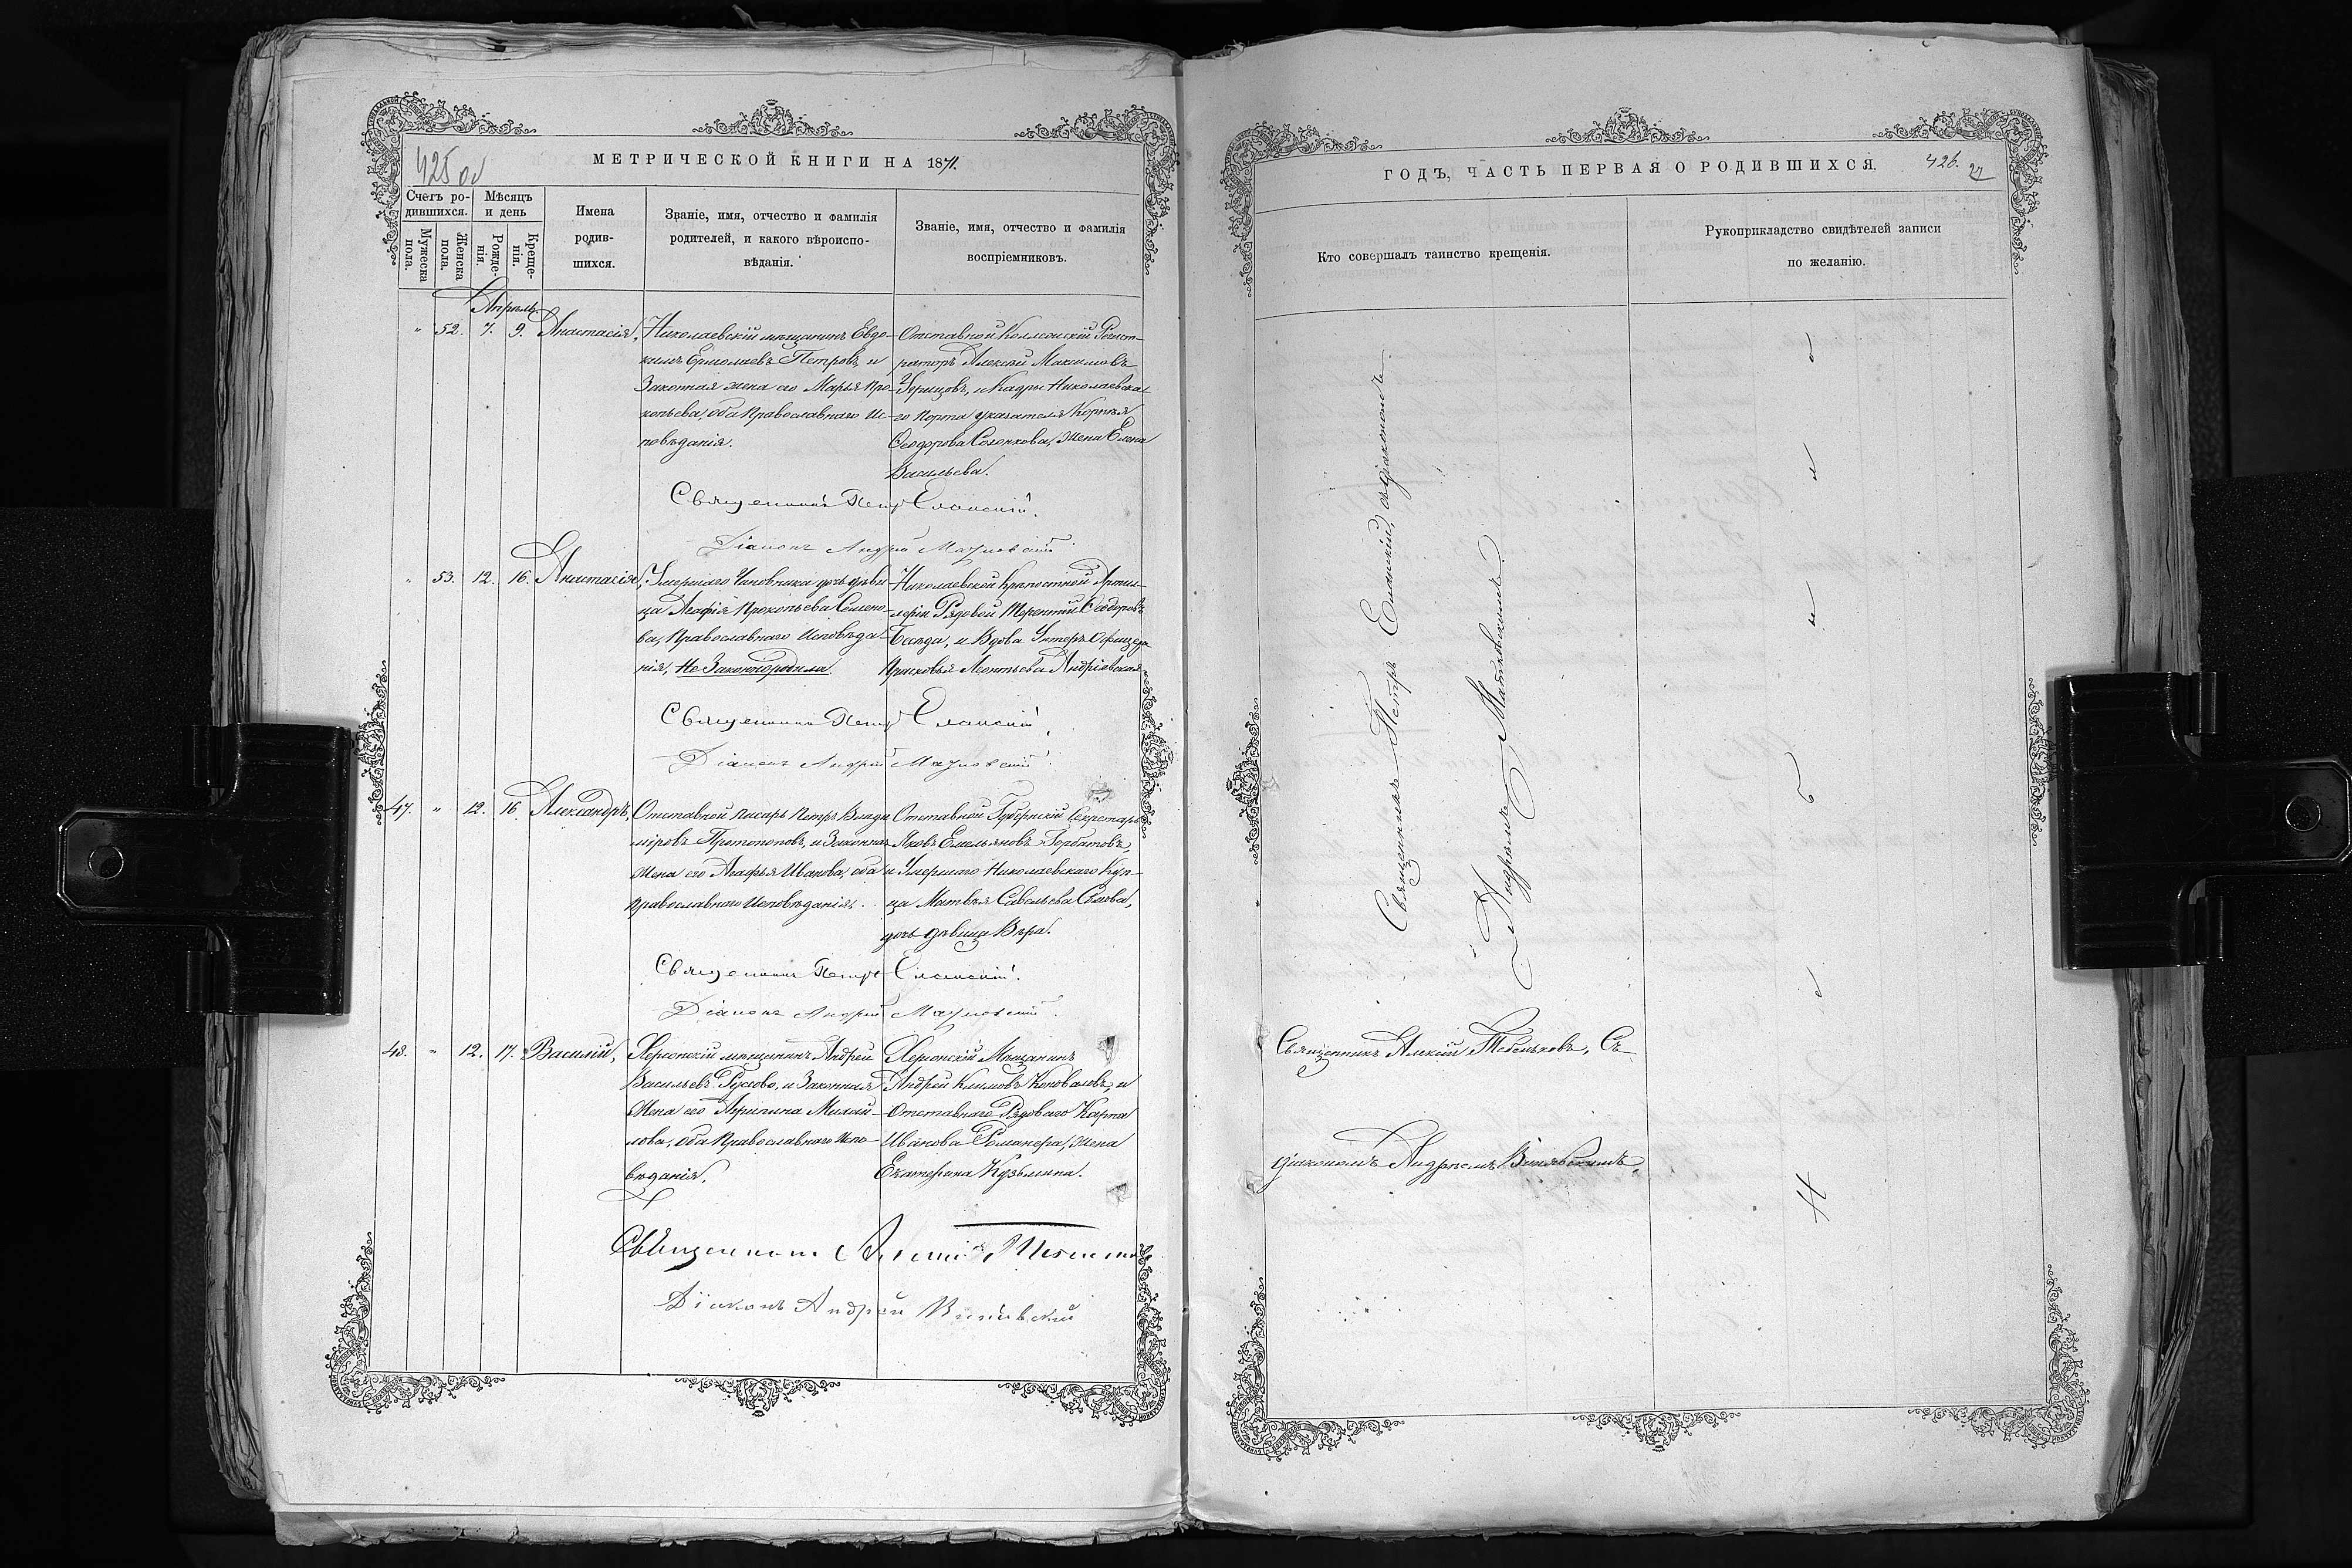 425 об
МЕТРИЧЕСКОЙ КНИГИ НА 1871.
Счетъ ро-
дившихся.
Мужеска пола.
Женска пола.
Мѣсяцъ
и день
Рожде-
нія.
Креще-
нія.
Имена
родив-
шихся.
Званіе, имя, отчество и фамилія
родителей, и какого вѣроиспо-
вѣданія.
Званіе, имя, отчество и фамилія
воспріемниковъ.
Апрѣль
" 52. 7. 9. Анастасія,
Николаевскій мѣщанинъ Евдо-
кимъ Ермолаевъ Петровъ, и
Законная жена его Марья Про-
копьева, оба Православнаго Ис-
повѣданія.
Отставной Коллежскій Регист-
раторъ Алексѣй Максимовъ
и Кадры Николаевска-
го Порта указателя Корнѣя
Ѳеодорова жена Елена
Васильева.
Священникъ Петръ Еланскій.
Діаконъ Андрей
" 53. 12. 16. Анастасія,
Умершаго Чиновника дочь дѣви-
ца Агафія Прокопьева Семено-
ва, Православнаго Исповѣда-
нія, Не Законнородила.
Николаевской Крѣпостной Артил-
леріи Рядовой Терентій Ѳеодоровъ
Бесѣда, и Вдова Унтеръ Офицера
Прасковья Леонтьева Андріевская
Священникъ Петръ Еланскій.
Діаконъ Андрей
47. " 12. 16. Александръ,
Отставной писарь Петръ Влади
міровъ Протопоповъ, и Законная
жена его Агафья Иванова, оба
Православнаго Исповѣданія.
Отставной Губернскій Секретарь
Яковъ Емельяновъ Горбатовъ,
и Умершаго Николаевскаго Куп-
ца Матвѣя Савельева
дочь дѣвица Вѣра.
Священникъ Петръ Еланскій.
Діаконъ Андрей
48. " 12. 17. Василій,
Херсонскій мѣщанинъ Андрей
Васильевъ Руссово, и Законная
жена его Агрипина Михай-
лова, оба Православнаго Испо-
вѣданія.
Херсонскій Мѣщанинъ
Андрей Климовъ Коноваловъ, и
Отставнаго Рядоваго Карпа
Иванова жена
Екатерина Кузьмина.
Священникъ Алексій
Діаконъ Андрей
ГОДЪ, ЧАСТЬ ПЕРВАЯ О РОДИВШИХСЯ.
426.
27
Кто совершалъ таинство крещенія.
Рукоприкладство свидѣтелей записи
по желанію.
Священникъ Петръ Еланскій, съ діакономъ
Андреемъ
Священникъ Алексій Тебеньковъ, Съ
діакономъ Андреемъ